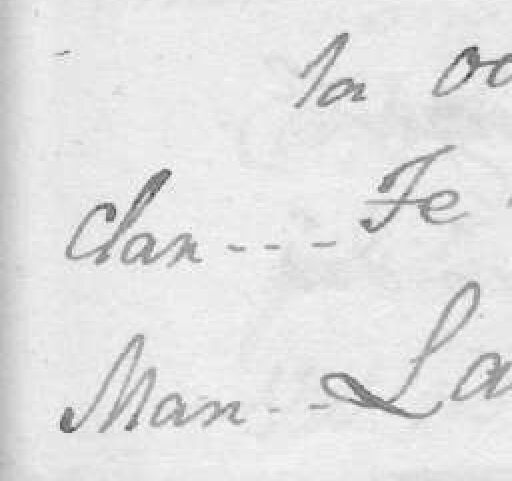 la oc
Clan - - - - Fe
Man - - - La